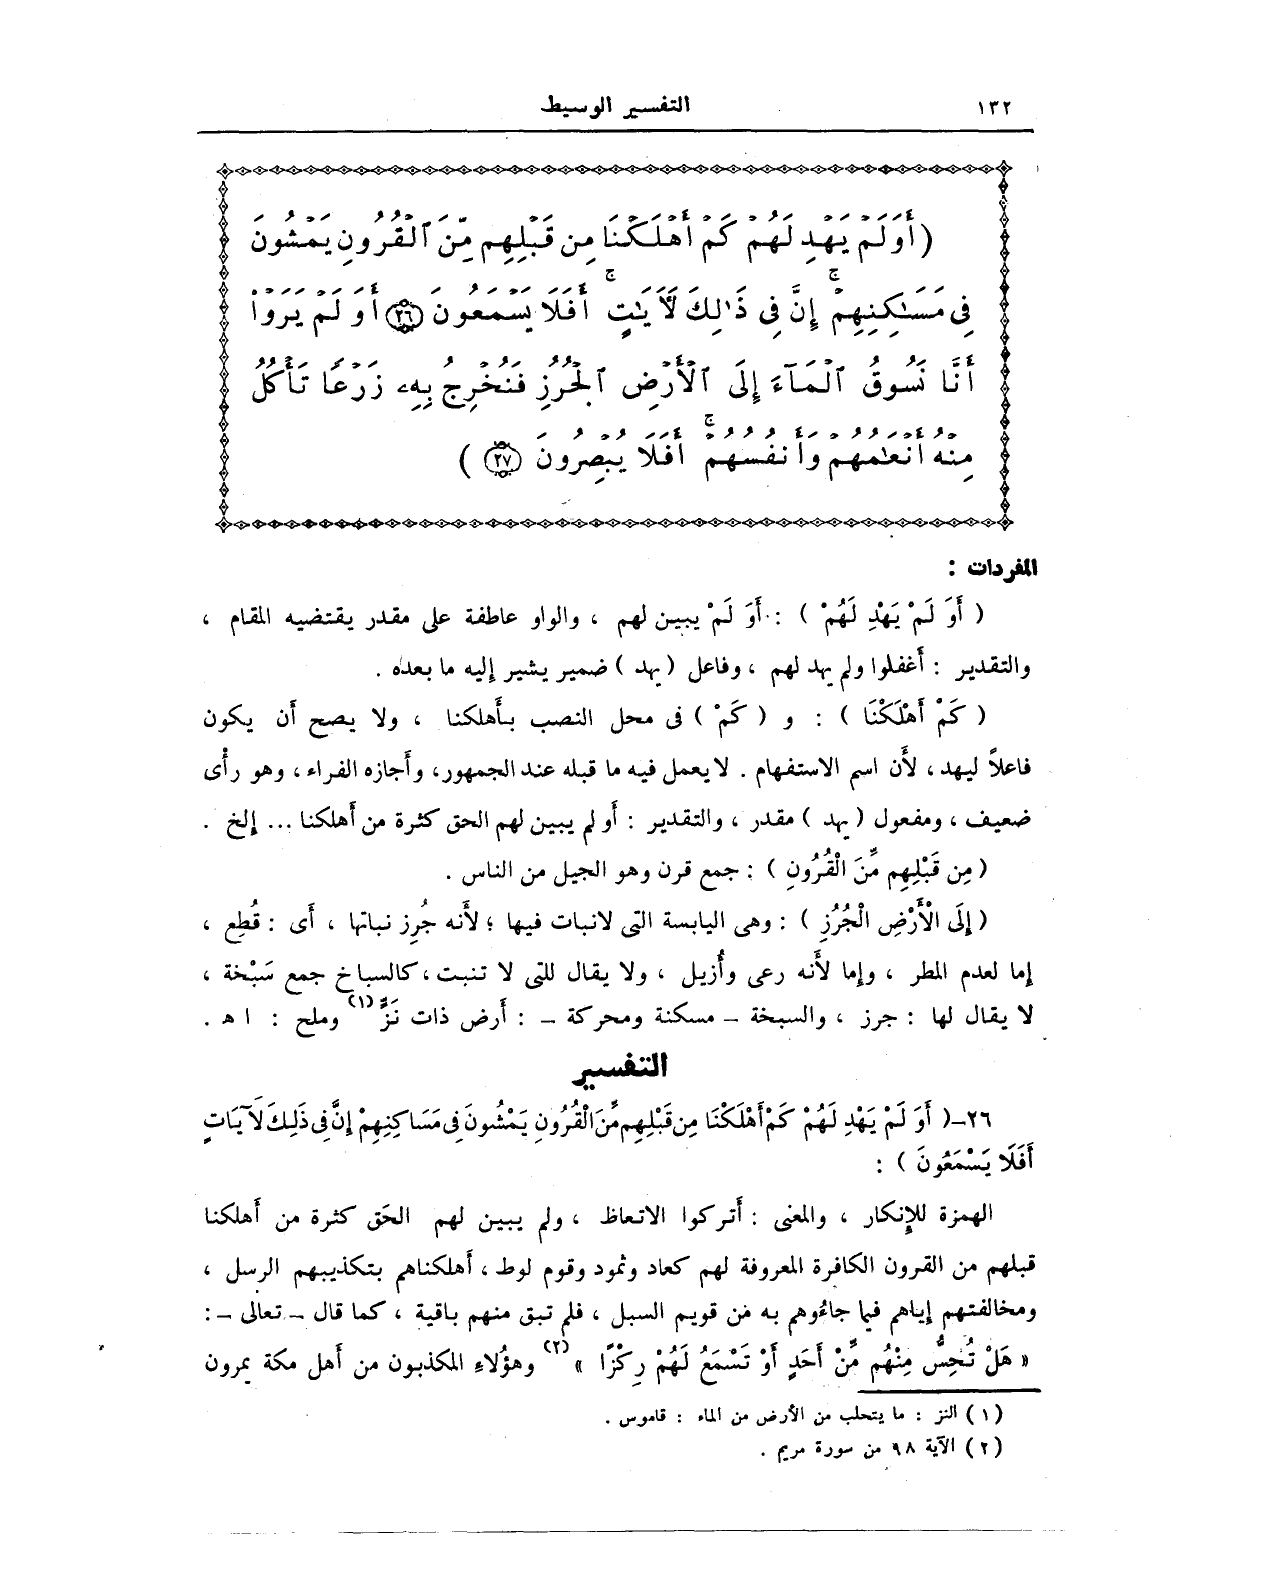 ١٣٢
التفسير الوسيط
( أَوَلَمْ يَهْدِ لَهُمْ كَمْ أَهْلَكْنَا مِن قَبْلِهِم مِّنَ ٱلْقُرُونِ يَمْشُونَ
فِى مَسَـٰكِنِهِمْۚ إِنَّ فِى ذَٰلِكَ لَأٓيَـٰتٍۚ أَفَلَا يَسْمَعُونَ ٢٦ أَوَلَمْ يَرَوْا۟
أَنَّا نَسُوقُ ٱلْمَآءَ إِلَى ٱلْأَرْضِ ٱلْجُرُزِ فَنُخْرِجُ بِهِۦ زَرْعًا تَأْكُلُ
مِنْهُ أَنْعَـٰمُهُمْ وَأَنفُسُهُمْۚ أَفَلَا يُبْصِرُونَ ٢٧ )
المفردات :
( أَوَ لَمْ يَهْدِ لَهُمْ ) : أَوَ لَمْ يبين لهم ، والواو عاطفة على مقدر يقتضيه المقام ،
والتقدير : أَغفلوا ولم يهد لهم ، وفاعل ( يهد ) ضمير يشير إليه ما بعده .
( كَمْ أَهْلَكْنَا ) : و ( كَمْ ) فى محل النصب بأَهلكنا ، ولا يصح أن يكون
فاعلاً ليهد ، لأَن اسم الاستفهام . لا يعمل فيه ما قبله عند الجمهور، وأَجازه الفراء ، وهو رأْى
ضعيف ، ومفعول ( يهد ) مقدر ، والتقدير : أَو لم يبين لهم الحق كثرة من أَهلكنا ... إلخ .
( مِن قَبْلِهِم مِّنَ الْقُرُونِ ) : جمع قرن وهو الجيل من الناس .
( إِلَى الْأَرْضِ الْجُرُزِ ) : وهى اليابسة التى لانبات فيها ؛ لأَنه جُرِز نباتها ، أَى : قُطِع ،
إما لعدم المطر ، وإما لأَنه رعى وأُزيل ، ولا يقال للتى لا تنبت ، كالسباخ جمع سَبْخة ،
لا يقال لها : جرز ، والسبخة – مسكنة ومحركة – : أَرض ذات نَزٍّ (١) وملح : ا هـ .
التفسير
٢٦–( أَوَ لَمْ يَهْدِ لَهُمْ كَمْ أَهْلَكْنَا مِن قَبْلِهِم مِّنَ الْقُرُونِ يَمْشُونَ فِى مَسَاكِنِهِمْ إِنَّ فِى ذَلِكَ لَآيَاتٍ
أَفَلَا يَسْمَعُونَ ) :
الهمزة للإِنكار ، والمعنى : أَتركوا الاتعاظ ، ولم يبين لهم الحَق كثرة من أَهلكنا
قبلهم من القرون الكافرة المعروفة لهم كعاد وثمود وقوم لوط ، أَهلكناهم بتكذيبهم الرسل ،
ومخالفتهم إياهم فيما جاءُوهم به من قويم السبل ، فلم تبق منهم باقية ، كما قال – تعالى – :
« هَلْ تُحِسُّ مِنْهُم مِّنْ أَحَدٍ أَوْ تَسْمَعُ لَهُمْ رِكْزًا » (٢) وهؤُلاءِ المكذبون من أَهل مكة يمرون
( ١ ) النز : ما يتحلب من الأرض من الماء : قاموس .
( ٢ ) الآية ٩٨ من سورة مريم .